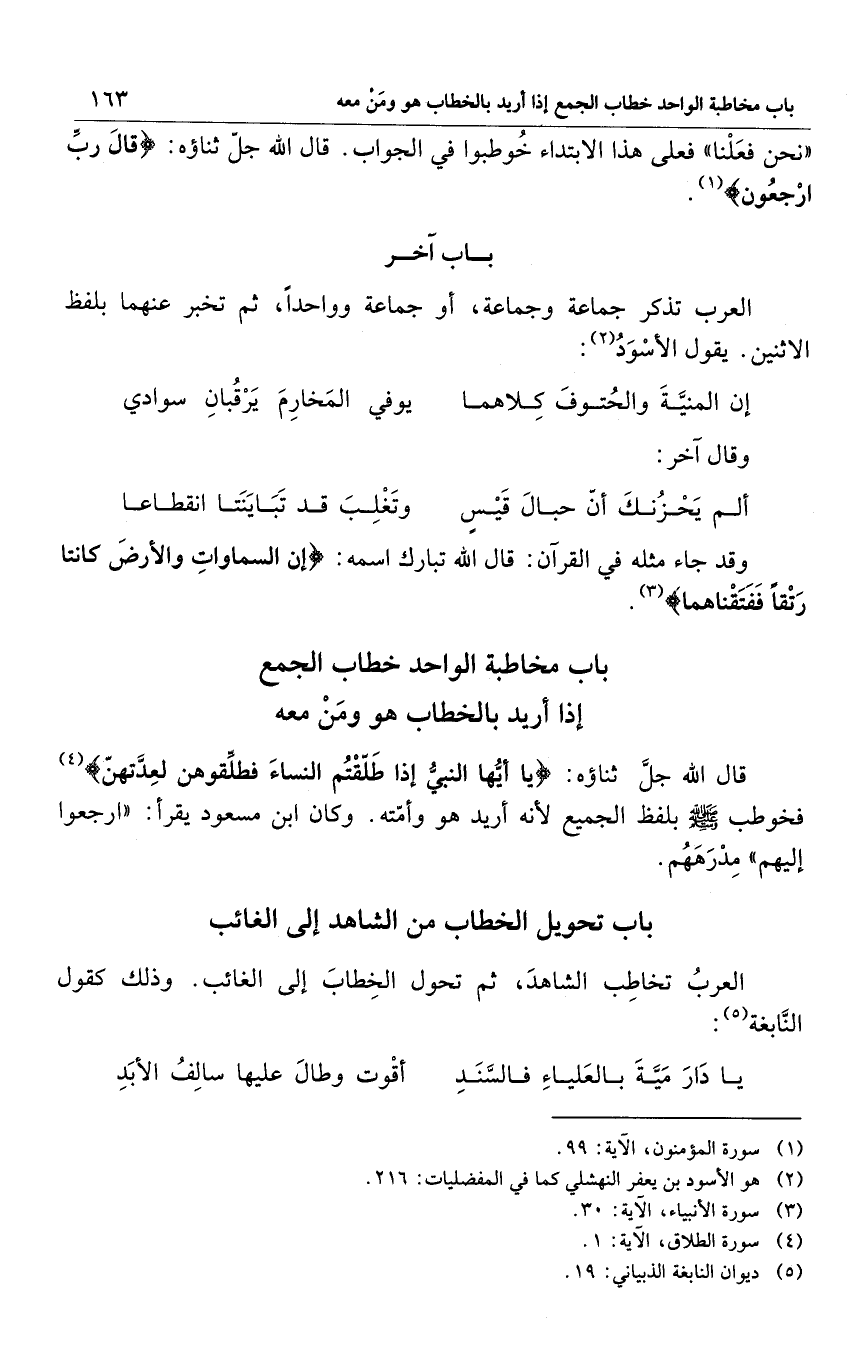 باب مخاطبة الواحد خطاب الجمع إذا أريد بالخطاب هو ومَنْ معه ١٦٣
«نحن فعَلْنا» فعلى هذا الابتداء خُوطبوا في الجواب. قال الله جلّ ثناؤه: ﴿قالَ ربِّ
ارْجعُون﴾(١).
بـاب آخـر
العرب تذكر جماعة وجماعة، أو جماعة وواحداً، ثم تخبر عنهما بلفظ
الاثنين. يقول الأسْوَدُ(٢):
إن المنيَّةَ والحُتوفَ كِلاهما يوفي المَخارِمَ يَرْقُبانِ سوادي
وقال آخر:
ألم يَحْزُنكَ أنّ حبالَ قَيْسٍ وتَغْلِبَ قد تَبَايَنَتا انقطاعا
وقد جاء مثله في القرآن: قال الله تبارك اسمه: ﴿إن السماواتِ والأرضَ كانتا
رَتْقاً فَفَتَقْناهما﴾(٣).
باب مخاطبة الواحد خطاب الجمع
إذا أريد بالخطاب هو ومَنْ معه
قال الله جلَّ ثناؤه: ﴿يا أيُّها النبيُّ إذا طَلّقْتُم النساءَ فطلِّقوهن لعِدَّتهنّ﴾(٤)
فخوطب ﷺ بلفظ الجميع لأنه أريد هو وأمّته. وكان ابن مسعود يقرأ: «ارجعوا
إليهم» مِدْرَهَهُم.
باب تحويل الخطاب من الشاهد إلى الغائب
العربُ تخاطِب الشاهدَ، ثم تحول الخِطابَ إلى الغائب. وذلك كقول
النَّابغة(٥):
يا دَارَ مَيَّةَ بالعَلياءِ فالسَّنَدِ أقْوت وطالَ عليها سالِفُ الأبَدِ
(١) سورة المؤمنون، الآية: ٩٩.
(٢) هو الأسود بن يعفر النهشلي كما في المفضليات: ٢١٦.
(٣) سورة الأنبياء، الآية: ٣٠.
(٤) سورة الطلاق، الآية: ١.
(٥) ديوان النابغة الذبياني: ١٩.